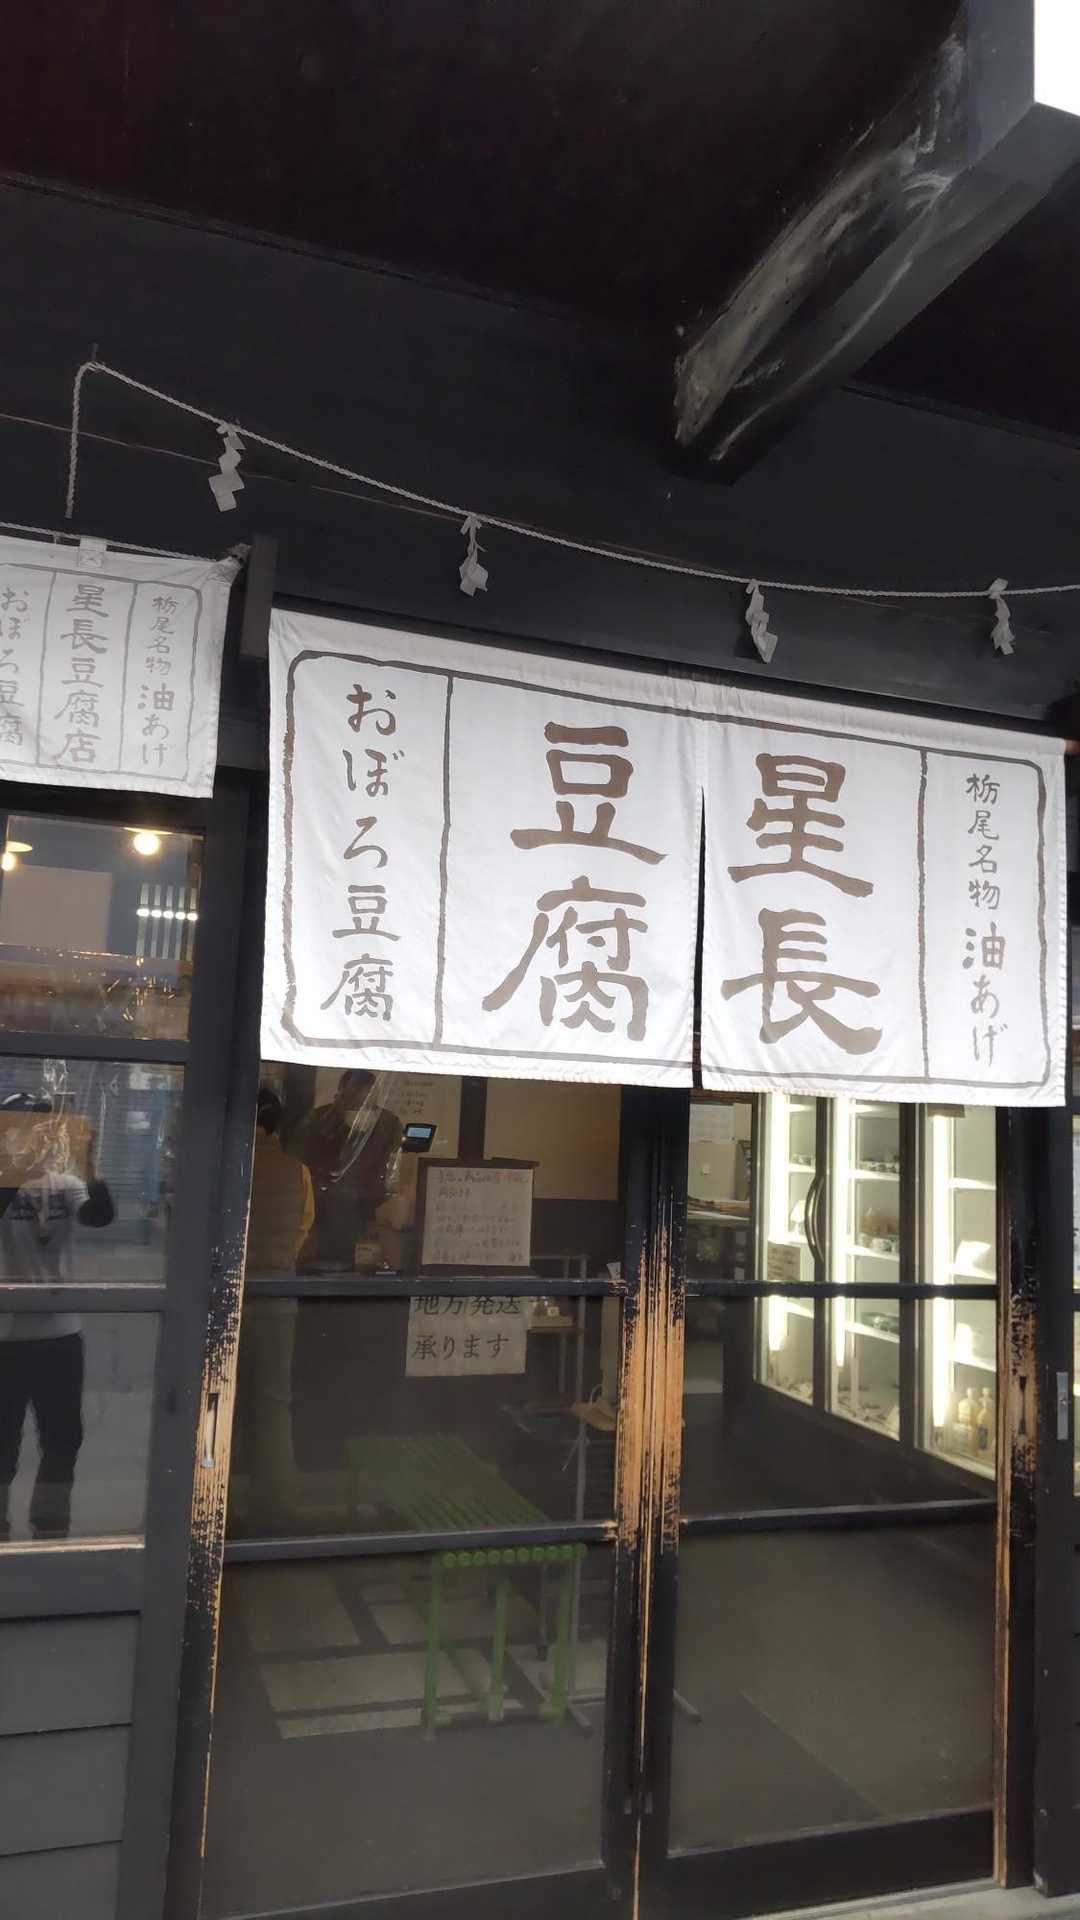 栃尾名物 油あげ
星長
豆腐
おぼろ豆腐
栃尾名物 油あげ
星長豆腐店
おぼろ豆腐
地方発送
承ります